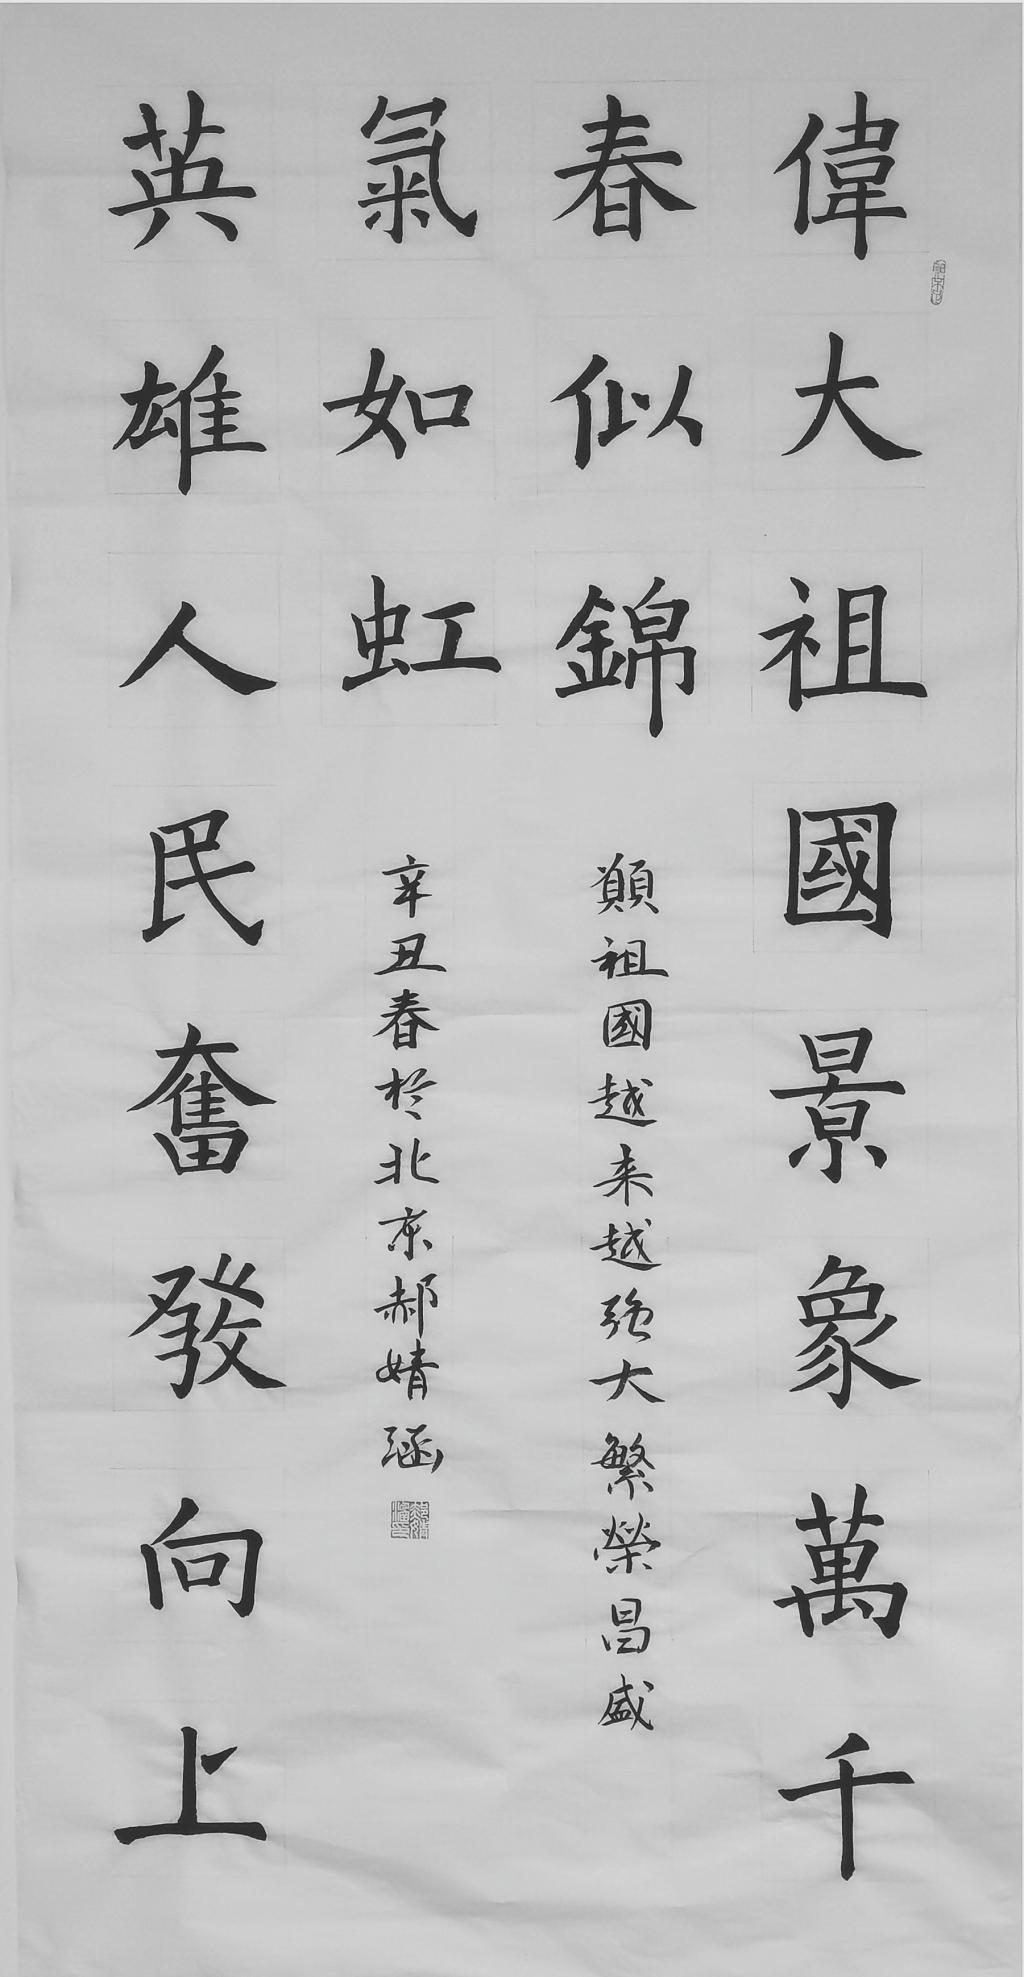 偉大祖國景象萬千
春似錦
願祖國越来越强大繁榮昌盛
英雄人民奮發向上
氣如虹
辛丑春於北京郝婧涵